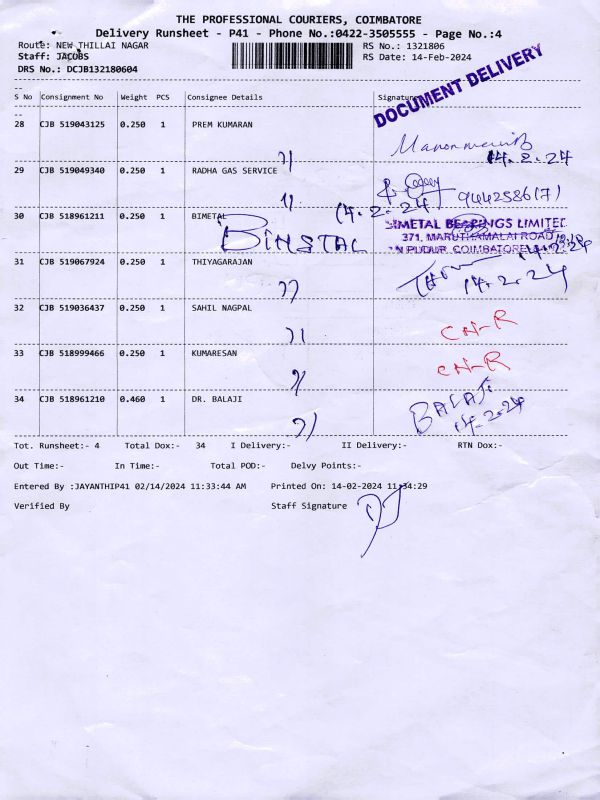 THE PROFESSIONAL COURIERS, COIMBATORE
Delivery Runsheet - P41 - Phone No.:0422-3505555 - Page No.:4
Route: NEW THILLAI NAGAR RS No.: 1321806
Staff: JACOBS RS Date: 14-Feb-2024
DRS No.: DCJB132180604
DOCUMENT DELIVERY
S No Consignment No Weight PCS Consignee Details Signature
28 CJB 519043125 0.250 1 PREM KUMARAN
14.2.24
29 CJB 519049340 0.250 1 RADHA GAS SERVICE
(14.2.24) 9442586(7)
30 CJB 518961211 0.250 1 BIMETAL
BIMETAL BEARINGS LIMITED
371, MARUTHAMALAI ROAD
COIMBATORE
31 CJB 519067924 0.250 1 THIYAGARAJAN
14.2.24
32 CJB 519036437 0.250 1 SAHIL NAGPAL
CN-R
33 CJB 518999466 0.250 1 KUMARESAN
CN-R
34 CJB 518961210 0.460 1 DR. BALAJI
BALAJI
14.2.24
Tot. Runsheet:- 4 Total Dox:- 34 I Delivery:- II Delivery:- RTN Dox:-
Out Time:- In Time:- Total POD:- Delvy Points:-
Entered By :JAYANTHIP41 02/14/2024 11:33:44 AM Printed On: 14-02-2024 11:34:29
Verified By Staff Signature